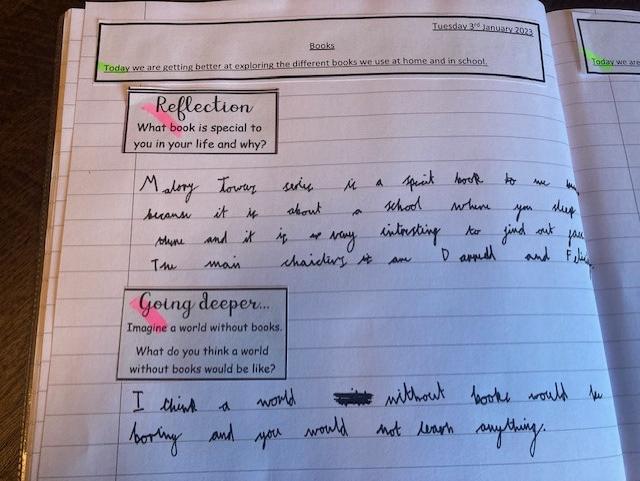 Tuesday 3rd January 2023
Books
Today we are getting better at exploring the different books we use at home and in school.
Today we are
Reflection
What book is special to
you in your life and why?
Malory Tower series is a book to me
because it is about a school where you sleep
and it is very intresting to find out
The main are Darrell and
Going deeper...
Imagine a world without books.
What do you think a world
without books would be like?
I think a world without books would be
boring and you would not learn anything.